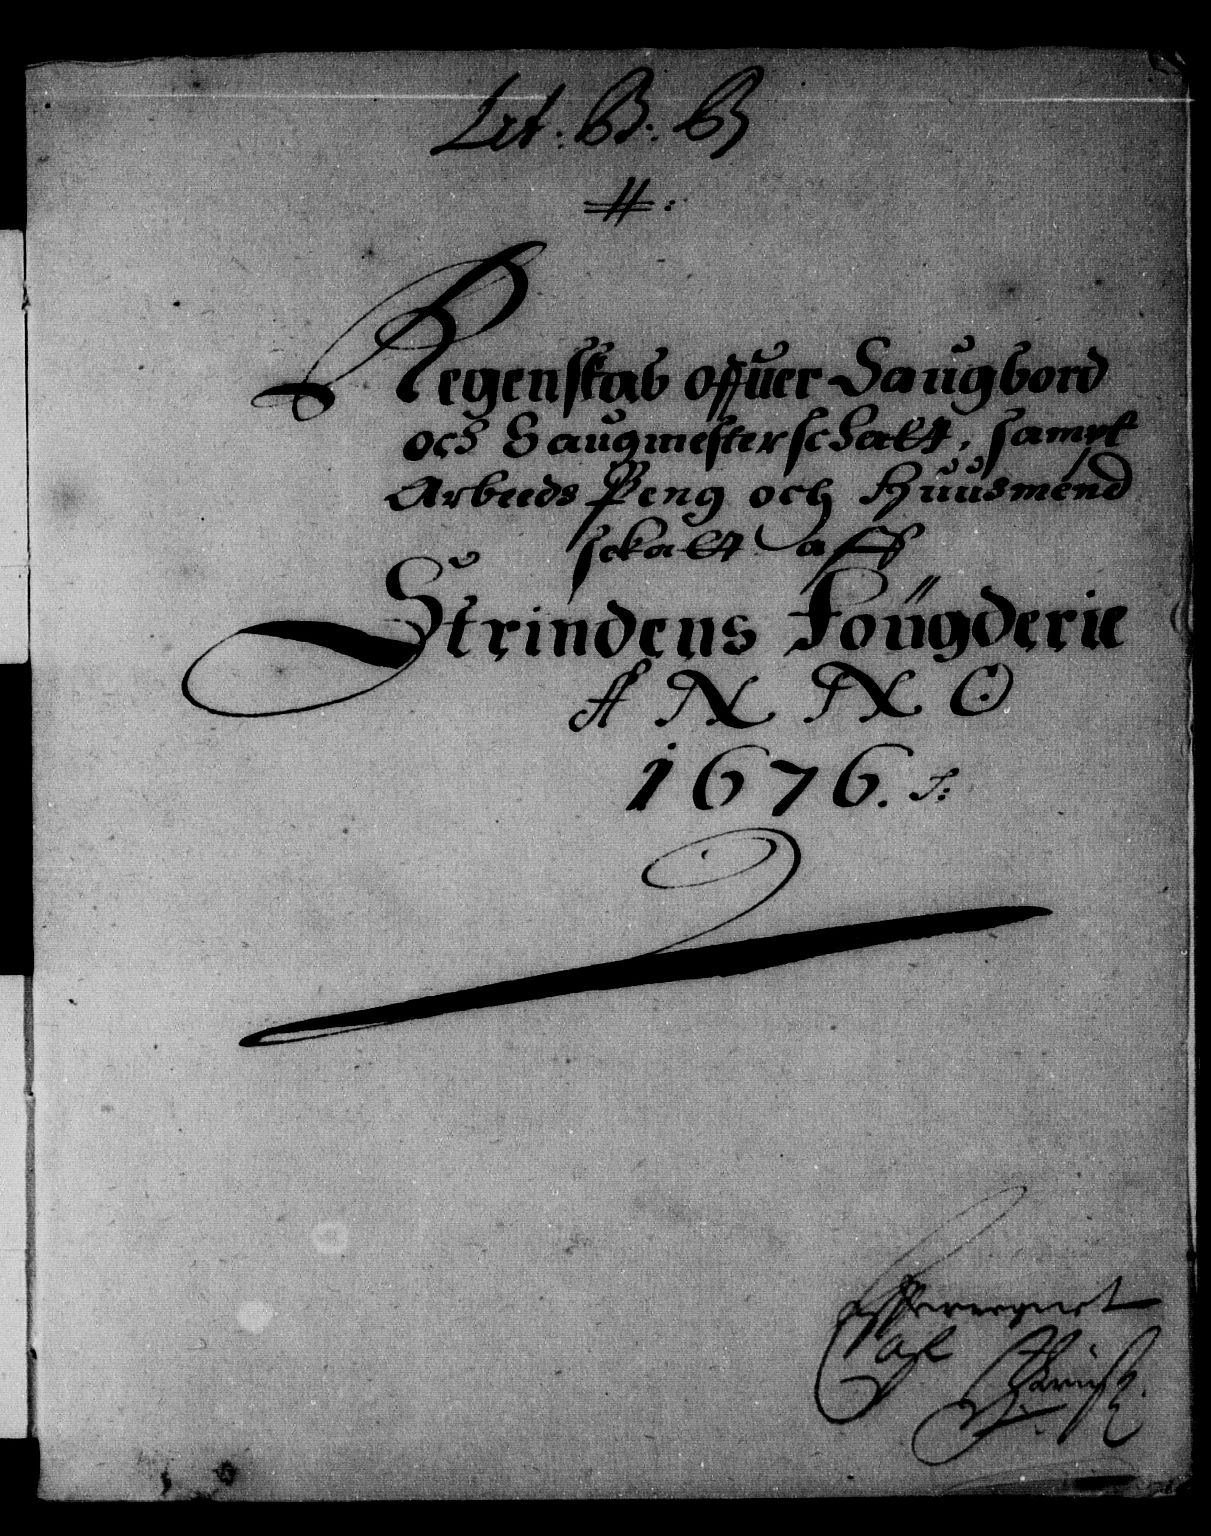 Let. B. B
#:
Regenskab offuer Saugbord
och Saugmesterschatt, sampt
Arbeeds Peng och Huusmend
schatt aff
Strindens Fougderie
ANNO
1676.
Offuerregnet
aff